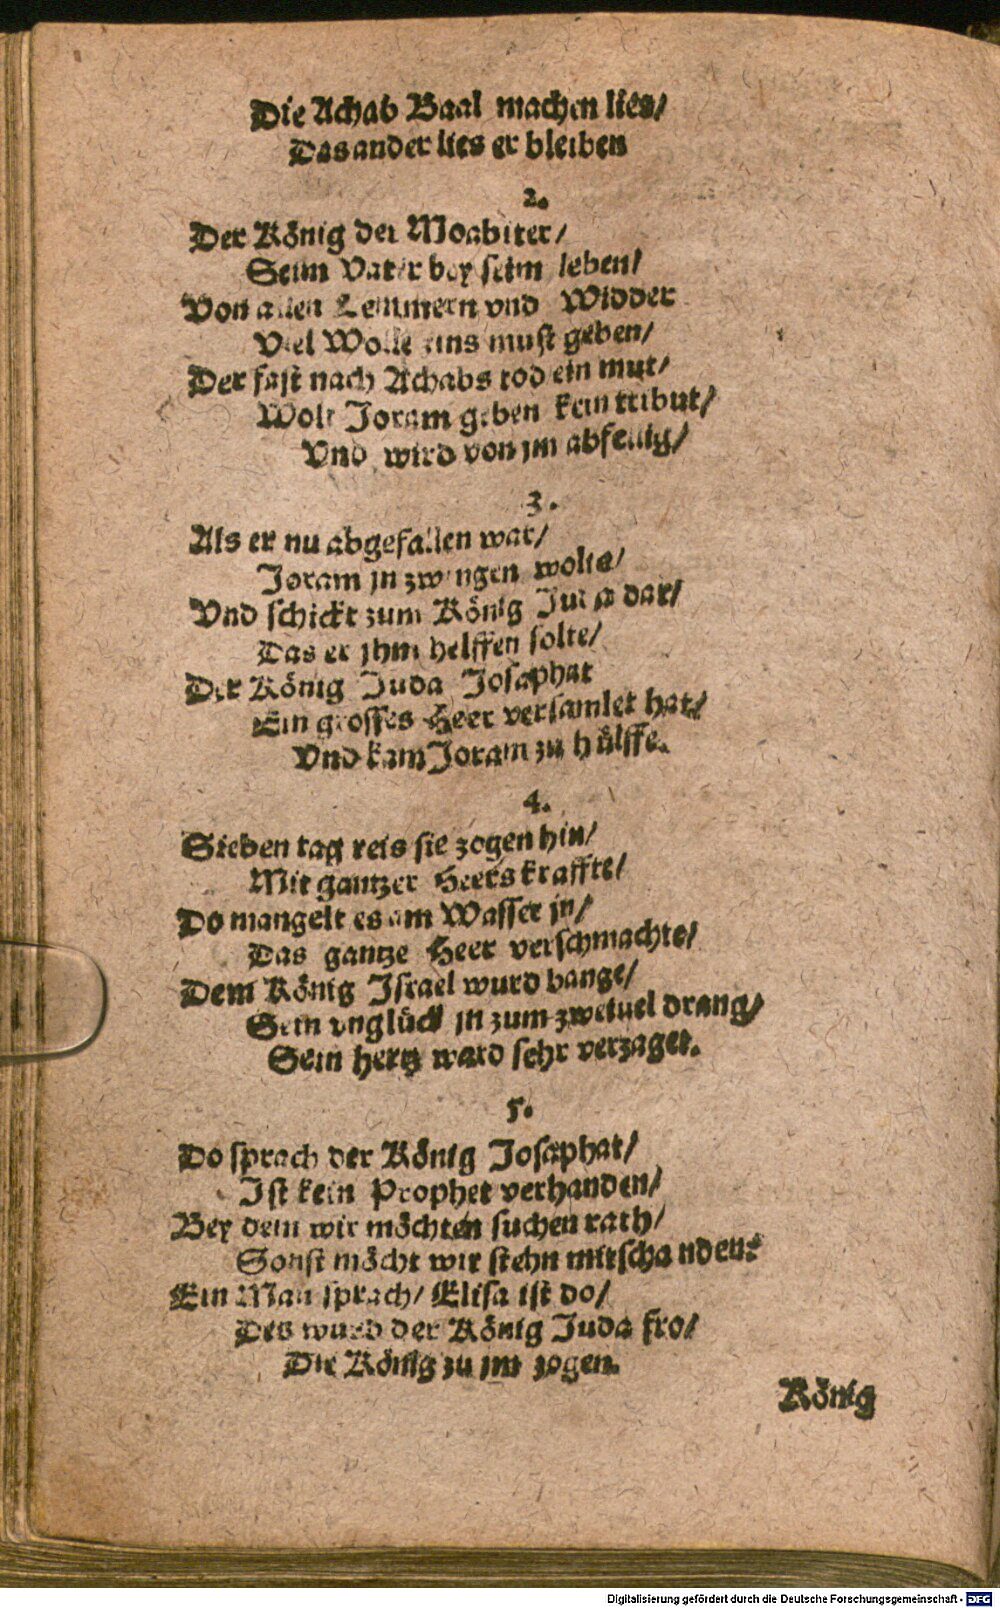 Die Achab Baal machen lies/
Das ander lies er bleiben
2.
Der König der Moabiter/
Seim Vater bey seim leben/
Von allen Lemmern vnd Widder
Viel Wolle zins must geben/
Der fast nach Achabs tod ein mut/
Wolt Joram geben kein tribut/
Vnd wird von jm abfellig/
3.
Als er nu abgefallen war/
Joram jn zwingen wolte/
Vnd schickt zum König Juda dar/
Das er jhm helffen solte/
Der König Juda Josaphat
Ein grosses Heer versamlet hat/
Vnd kam Joram zu hülffe.
4.
Sieben tag reis sie zogen hin/
Mit gantzer Heerskraffte/
Do mangelt es am Wasser jn/
Das gantze Heer verschmachte/
Dem König Israel wurd bange/
Sein vnglück jn zum zweiuel drang/
Sein hertz ward sehr verzaget.
5.
Do sprach der König Josaphat/
Ist kein Prophet verhanden/
Bey dem wir möchten suchen rath/
Sonst möcht wir stehn mit schanden:
Ein Man sprach/ Elisa ist do/
Des wurd der König Juda fro/
Die König zu jm zogen.
König
Digitalisierung gefördert durch die Deutsche Forschungsgemeinschaft - DFG